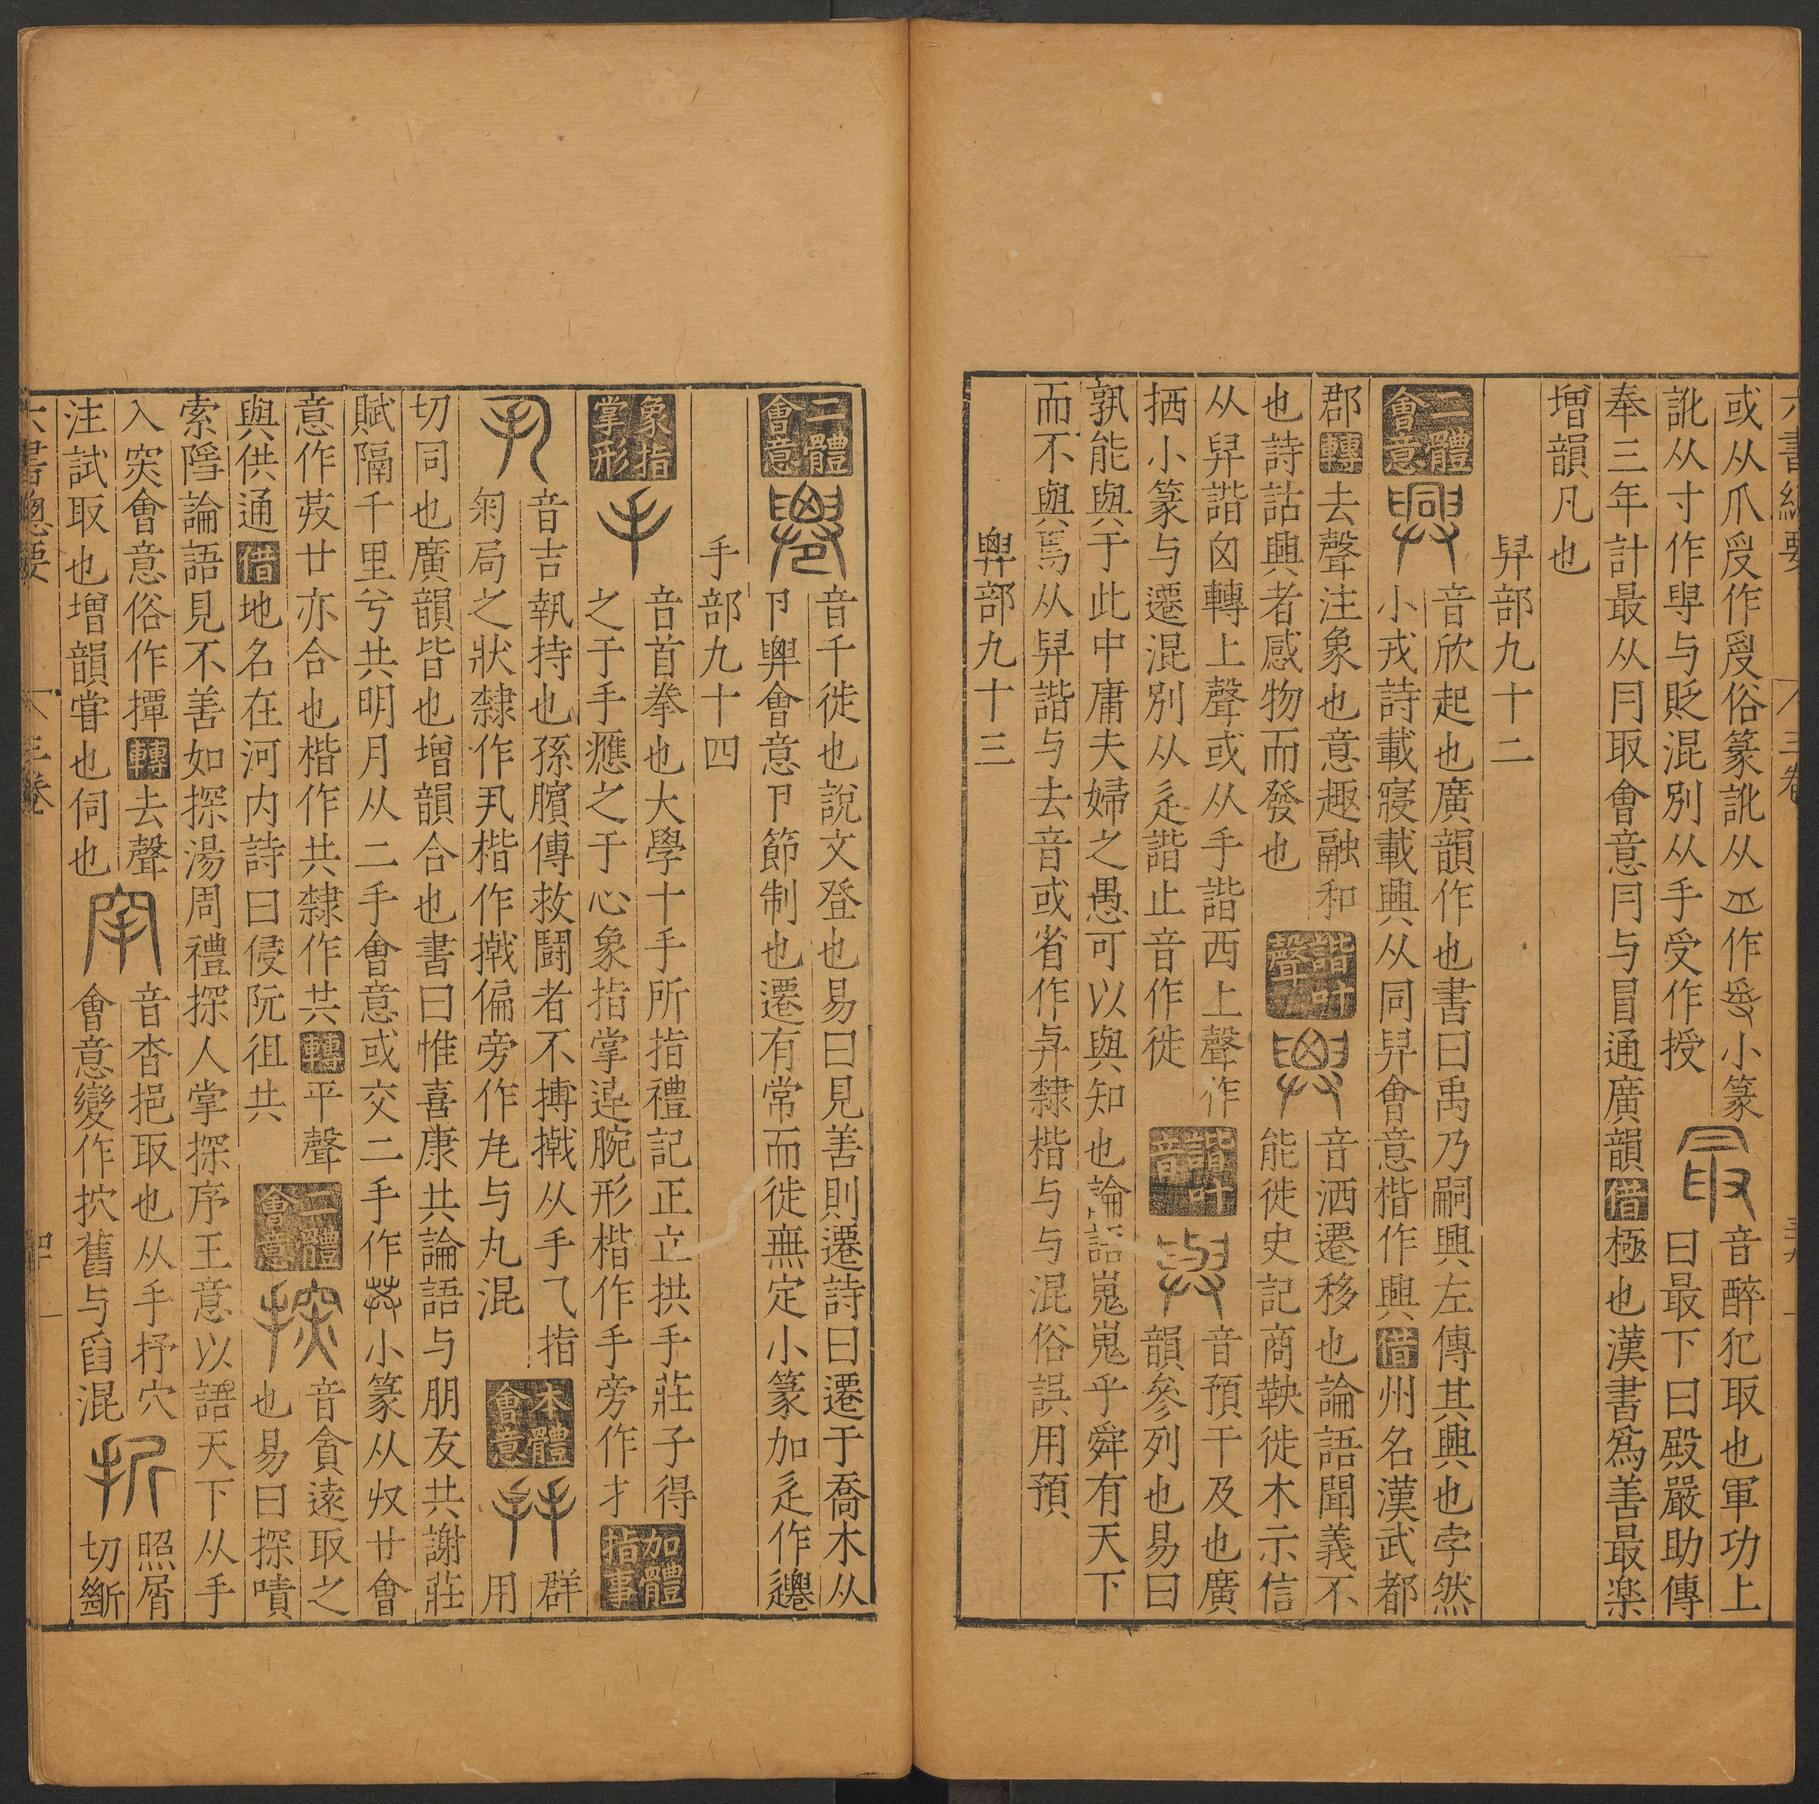 六書總要 三卷
或从爪爰作爰俗篆訛从作小篆
音醉犯取也軍功上
訛从寸作與貶混別从手受作授
曰最下曰殿嚴助傳
奉三年計最从冃取會意冃与冒通廣韻借極也漢書爲善最楽
增韻凡也
舁部九十二
二體會意
音欣起也廣韻作也書曰禹乃嗣興左傳其興也孛然
小戎詩載寢載興从同舁會意楷作興借州名漢武都
郡轉去聲注象也意趣融和
諧叶聲
音洒遷移也論語聞義不
也詩詁興者感物而發也
能徙史記商鞅徒木示信
从舁諧囟轉上聲或从手諧西上聲作
拪小篆与遷混別从辵諧止音作徙
諧叶音
音預干及也廣
韻參列也易曰
孰能與于此中庸夫婦之愚可以與知也論語嵬嵬乎舜有天下
而不與焉从舁諧与去音或省作隸楷与与混俗誤用預
部九十三
二體會意
音千徙也說文登也易曰見善則遷詩曰遷于喬木从
卩會意卩節制也遷有常而徙無定小篆加辵作遷
手部九十四
象指掌形
音首拳也大學十手所指禮記正立拱手莊子得
之于手應之于心象指掌連腕形楷作手旁作扌
加體指事
音吉執持也孫臏傳救鬪者不搏撠从手乁指
匊局之狀隸作丮楷作撠偏旁作与丸混
本體會意
群用
切同也廣韻皆也增韻合也書曰惟喜康共論語与朋友共謝莊
賦隔千里兮共明月从二手會意或交二手作小篆从収廿會
意作廿亦合也楷作共隸作共轉平聲
與供通借地名在河内詩曰侵阮徂共
二體會意
音貪遠取之
也易曰探嘖
索隱論語見不善如探湯周禮探人掌探序王意以語天下从手
入突會意俗作撢轉去聲
音杳挹取也从手抒穴
注試取也增韻嘗也伺也
會意變作抭舊与舀混
照屑
切斷
六書總要 三卷 四十